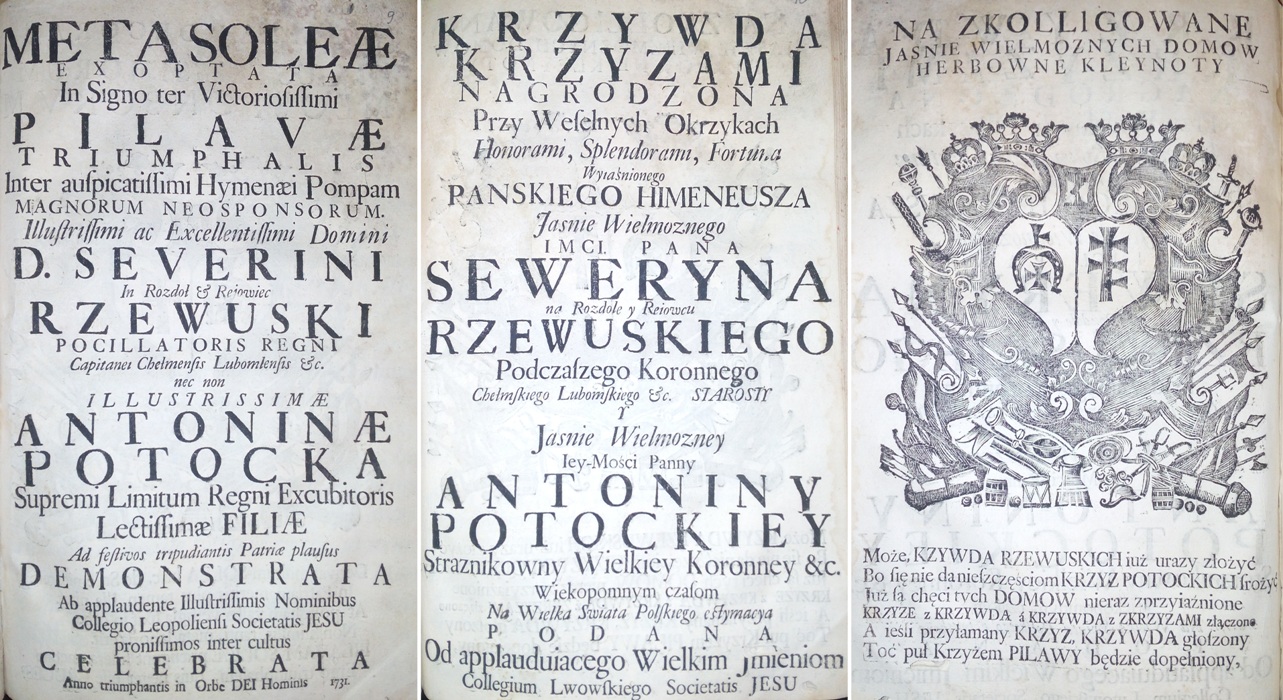 METASOLEÆ
EXOPTATA
In Signo ter Victoriosissimi
PILAVÆ
TRIUMPHALIS
Inter auſpicatiſſimi Hymenæi Pompam
MAGNORUM NEOSPONSORUM.
Illuſtriſſimi ac Excellentiſſimi Domini
D. SEVERINI
In Rozdoł & Reiowiec
RZEWUSKI
POCILLATORIS REGNI
Capitanei Chelmenſis Lubomlenſis &c.
nec non
ILLUSTRISSIMÆ
ANTONINÆ
POTOCKA
Supremi Limitum Regni Excubitoris
Lectiſſimæ FILIÆ
Ad feſtivos tripudiantis Patriæ plauſus
DEMONSTRATA
Ab applaudente Illuſtriſſimis Nominibus
Collegio Leopolienſi Societatis JESU
proniſſimos inter cultus
CELEBRATA
Anno triumphantis in Orbe DEI Hominis 1731.
KRZYWDA
KRZYZAMI
NAGRODZONA
Przy Weſelnych Okrzykach
Honorami, Splendorami, Fortuna
Wyiaśnionego
PANSKIEGO HIMENEUSZA
Jasnie Wielmoznego
IMCI. PANA
SEWERYNA
na Rozdole y Reiowcu
RZEWUSKIEGO
Podczaſzego Koronnego
Chełmſkiego Lubomſkiego &c. STAROSTY
Y
Jasnie Wielmozney
Iey-Mości Panny
ANTONINY
POTOCKIEY
Straznikowny Wielkiey Koronney &c.
Wiekopomnym czaſom
Na Wielka Swiata Polſkiego eſtymacya
PODANA
Od applauduiacego Wielkim Jmieniom
Collegium Lwowſkiego Societatis JESU
NA ZKOLLIGOWANE
JASNIE WIELMOZNYCH DOMOW
HERBOWNE KLEYNOTY
Może, KZYWDA RZEWUSKICH iuż urazy złożyć
Bo ſię nie da nieszczęściom KRZYZ POTOCKICH ſrożyć
Już ſą chęci tych DOMOW nieraz zprzyiaźnione
KRZYZE z KRZYWDA á KRZYWDA z ZKRZYZAMI złączone
A ieśli przyłamany KRZYZ, KRZYWDA głoſzony
Toć puł Krzyżem PILAWY będzie dopełniony,